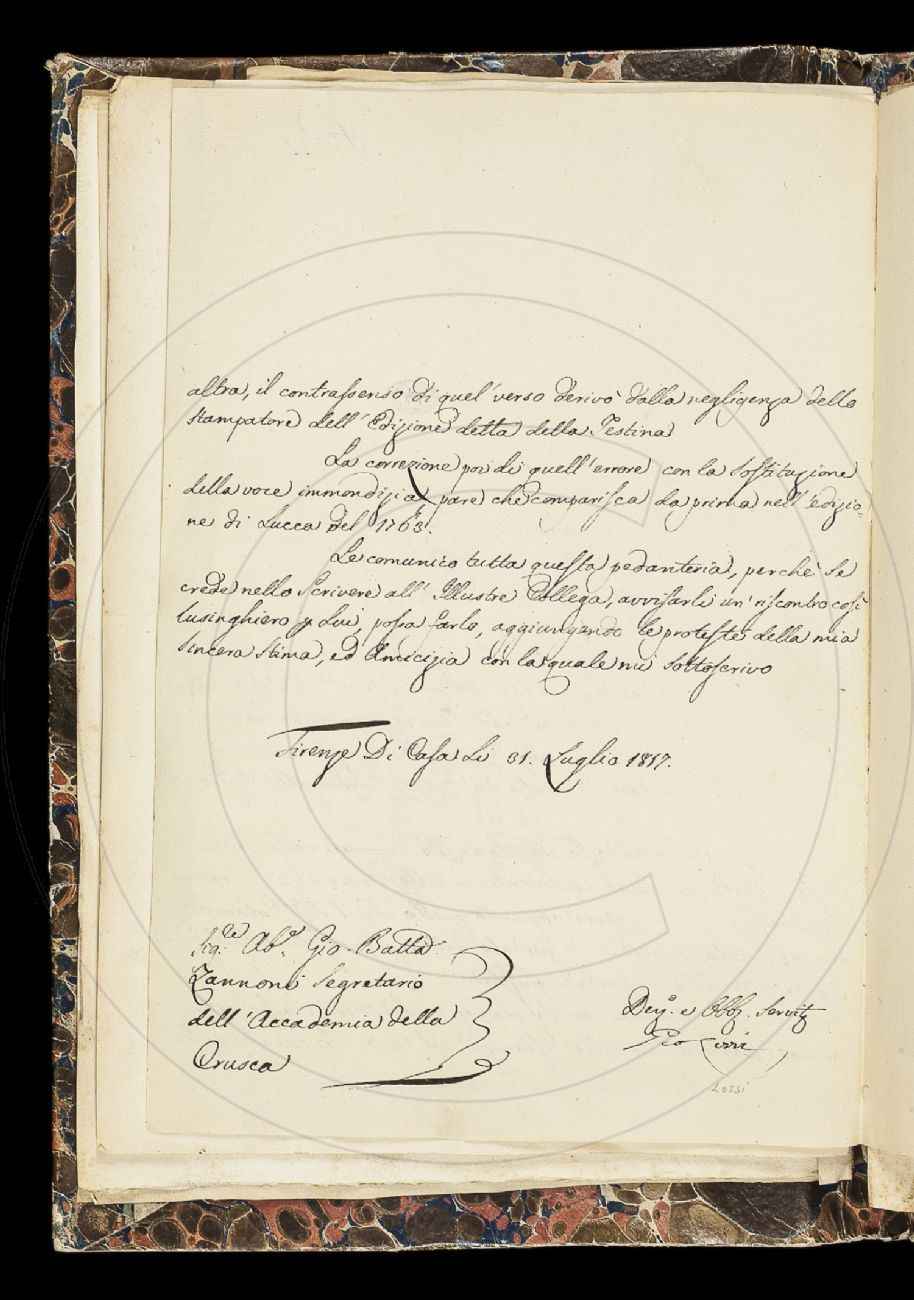 altra, il contrassenso di quel' verso derivò dalla negligenza dello
Stampatore dell' Edizione detta della Testina
La correzione poi di quell' errore con la Sostituzione
della voce immondizia, pare che comparisca la prima nell' edizio-
ne di Lucca del 1763.
Le comunico tutta questa pedanteria, perchè se
crede nello Scrivere all' Illustre Collega, avvisarli un' riscontro così
lusinghiero p Lui, possa farlo, aggiungendo le proteste della mia
Sincera Stima, ed Amicizia con la quale mi Sottoscrivo
Firenze Di Casa Li 31. Luglio 1817.
Sig:re Ab:e Gio. Batta
Zannoni Segretario
dell' Accademia della
Crusca
Dev:o e Obb. Servit
Lessi